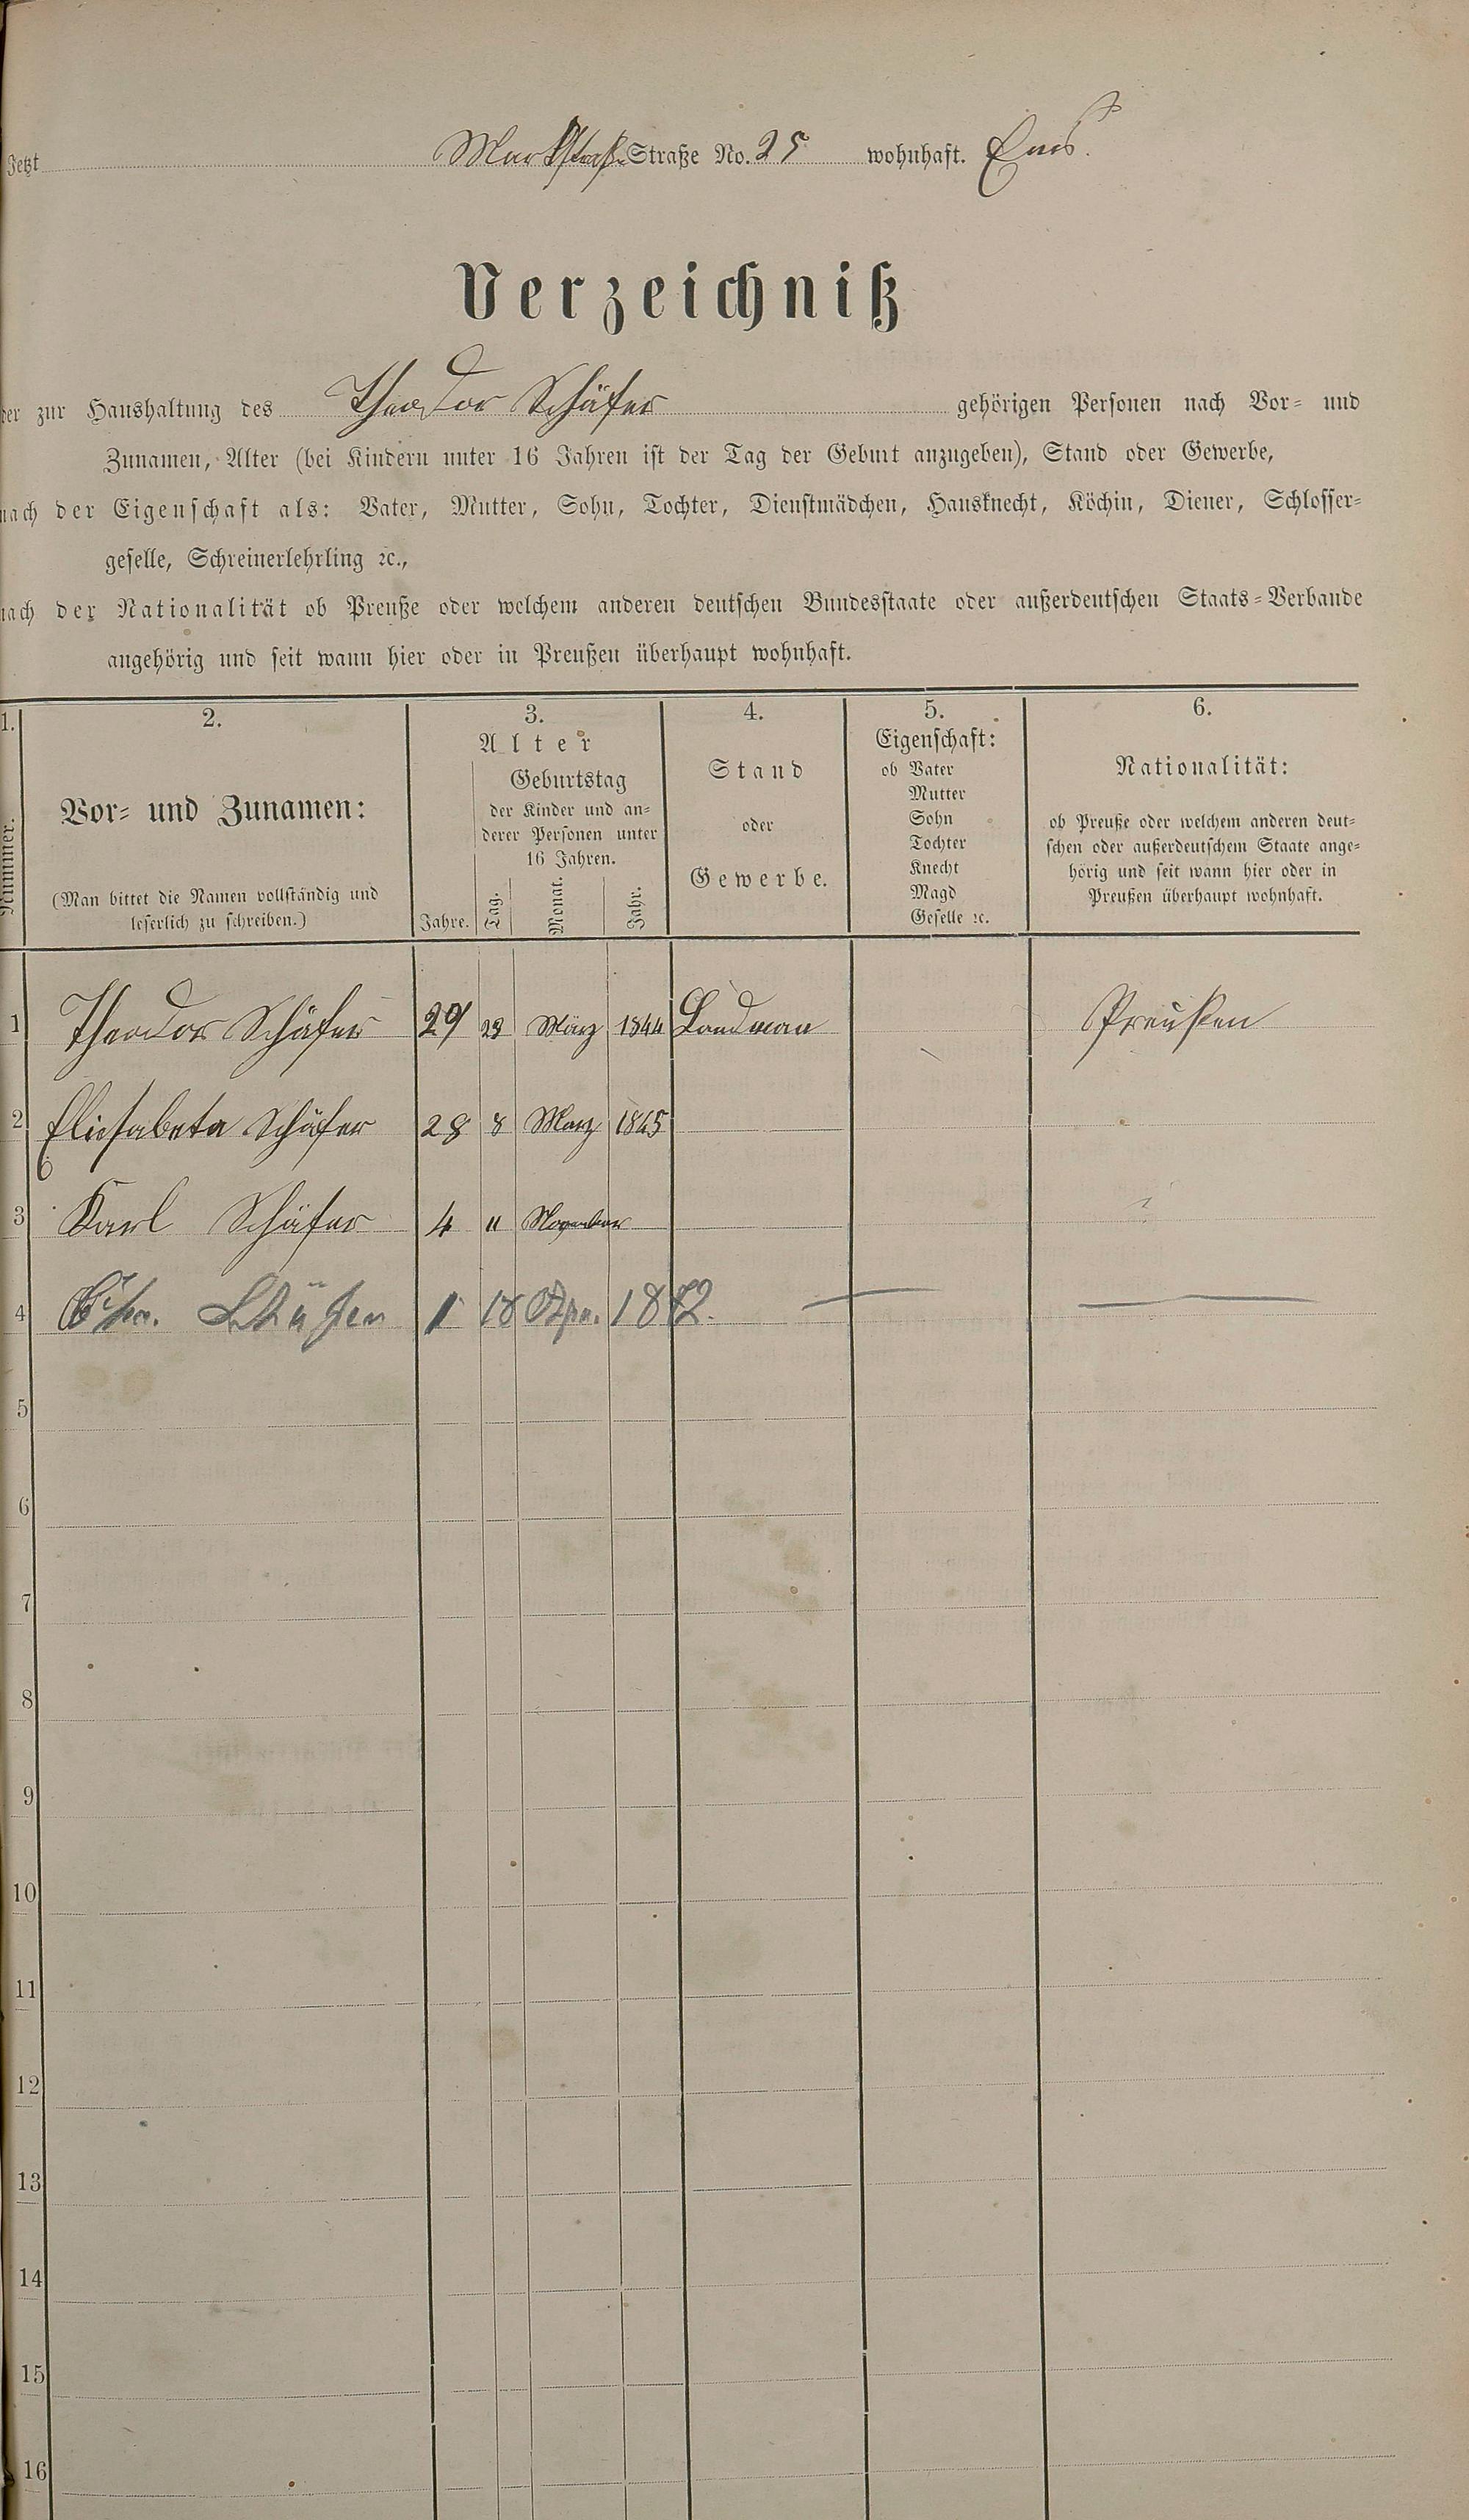 Jetzt Marktstraße Straße No. 25 wohnhaft. Ems.
Verzeichniß
der zur Haushaltung des Theodor Schäfer gehörigen Personen nach Vor- und
Zunamen, Alter (bei Kindern unter 16 Jahren ist der Tag der Geburt anzugeben), Stand oder Gewerbe,
nach der Eigenschaft als: Vater, Mutter, Sohn, Tochter, Dienstmädchen, Hausknecht, Köchin, Diener, Schlosser-
geselle, Schreinerlehrling ꝛc.,
nach der Nationalität ob Preuße oder welchem anderen deutschen Bundesstaate oder außerdeutschen Staats-Verbande
angehörig und seit wann hier oder in Preußen überhaupt wohnhaft.
1. 2. 3. 4. 5. 6.
Nummer.
Vor- und Zunamen:
(Man bittet die Namen vollständig und
leserlich zu schreiben.)
Alter
Jahre.
Geburtstag
der Kinder und an-
derer Personen unter
16 Jahren.
Tag. Monat. Jahr.
Stand
oder
Gewerbe.
Eigenschaft:
ob Vater
Mutter
Sohn
Tochter
Knecht
Magd
Geselle ꝛc.
Nationalität:
ob Preuße oder welchem anderen deut-
schen oder außerdeutschem Staate ange-
hörig und seit wann hier oder in
Preußen überhaupt wohnhaft.
1 Theodor Schäfer 29 23 März 1844 Landman Preußen
2 Eliesabeta Schäfer 28 8 Marz 1845
3 Karl Schäfer 4 11 November
4 Chr. Schäfer 1 18 Apr. 1872.
5
6
7
8
9
10
11
12
13
14
15
16